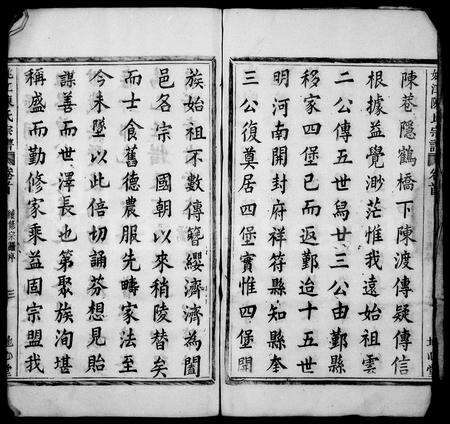 陳巷隱鶴橋下陳渡傳疑傳信
根據益覺渺茫惟我遠始祖雲
二公傳五世為廿三公由鄞縣
移家四堡已而返鄞迨十五世
明河南開封府祥符縣知縣奎
三公復奠居四堡實惟四堡開
族始祖不數傳簪纓濟濟為闔
邑名宗國朝以來稍陵替矣
而士食舊德農服先疇家法至
今未墜以此倍切誦芬想見貽
謀善而世澤長也第聚族洵堪
稱盛而勤修家乘益固宗盟我